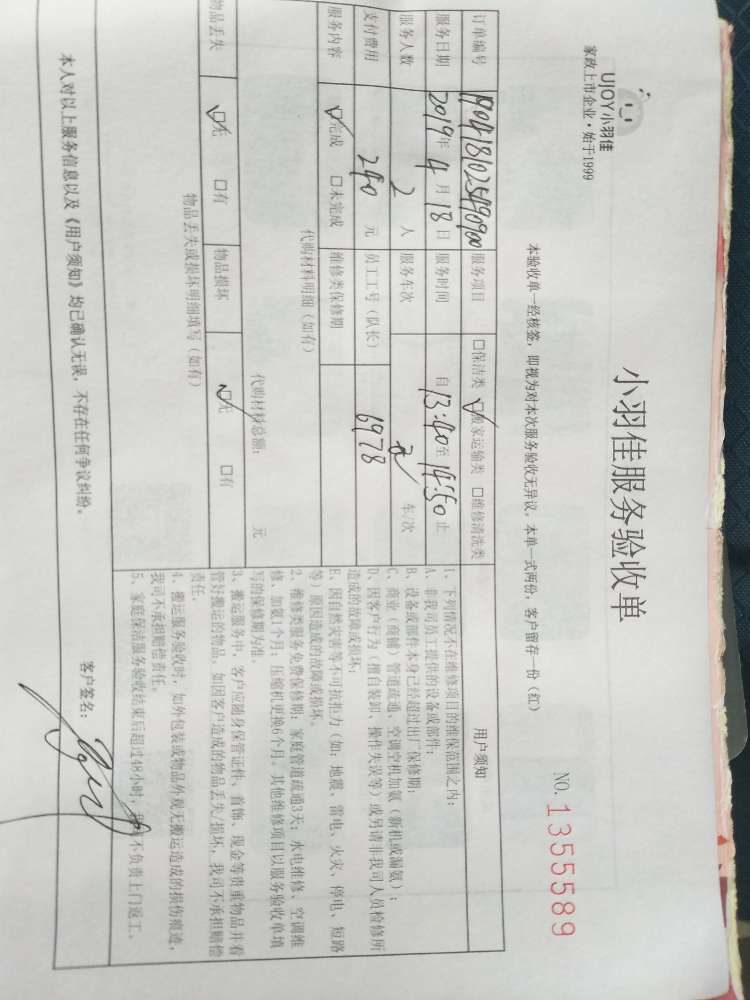 UJOY小羽佳
家政上市企业·始于1999
小羽佳服务验收单
本验收单一经核签,即视为对本次服务验收无异议,本单一式两份,客户留存一份(红)
NO. 1355589
订单编号 服务项目 □保洁类 ☑搬家运输类 □维修清洗类
服务日期 2019年 4月 18日 服务时间 自 13:40 至 14:50 止
服务人数 2 人 服务车次 车/次
支付费用 240 元 员工工号(队长) 6978
服务内容 ☑完成 □未完成 维修类保修期
代购材料明细(如有)
代购材料总额: 元
物品丢失 ☑无 □有 物品损坏 ☑无 □有
物品丢失或损坏明细填写(如有)
用户须知
1、下列情况不在维修项目的维保范围之内:
A、非我司员工提供的设备或部件;
B、设备或部件本身已经超过出厂保修期;
C、商业(商铺)管道疏通、空调空机加氨(新机或漏氨);
D、因客户行为(擅自装卸、操作失误等)或另请非我司人员检修所
造成的故障或损坏;
E、因自然灾害等不可抗拒力(如:地震、雷电、火灾、停电、短路
等)原因造成的故障或损坏。
2、维修类服务免费保修期:家庭管道疏通3天;水电维修、空调维
修、加氨1个月;压缩机更换6个月。其他维修项目以服务验收单填
写的保修期为准。
3、搬运服务中,客户应随身保管证件、首饰、现金等贵重物品并看
管好搬运的物品,如因客户造成的物品丢失/损坏,我司不承担赔偿
责任。
4、搬运服务验收时,如外包装或物品外观无搬运造成的损伤痕迹,
我司不承担赔偿责任。
5、家庭保洁服务验收结束后超过48小时,我司不负责上门返工。
本人对以上服务信息以及《用户须知》均已确认无误,不存在任何争议纠纷。
客户签名: